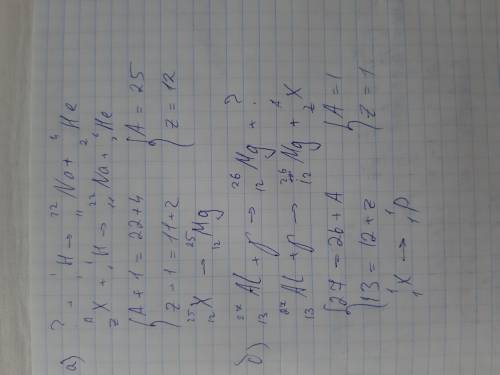 а) ? + ¹₁H → ²²₁₁Na + ⁴₂He
ᴬ_Z X + ¹₁H → ²²₁₁Na + ⁴₂He
{A + 1 = 22 + 4 {A = 25
{Z + 1 = 11 + 2 {Z = 12
²⁵₁₂X → ²⁵₁₂Mg
б) ²⁷₁₃Al + γ → ²⁶₁₂Mg + ?
²⁷₁₃Al + γ → ²⁶₁₂Mg + ᴬ_Z X
{27 = 26 + A {A = 1
{13 = 12 + Z {Z = 1
¹₁X → ¹₁p